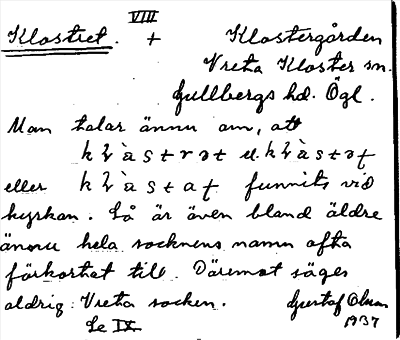 VIII
Klostret. + Klostergården
Vreta Kloster sn.
Gullbergs hd. Ögl.
Man talar ännu om, att
k l à s t r ə t el. k l à s t ə ʈ
eller k l à s t a ʈ funnits vid
kyrkan. Så är även bland äldre
ännu hela socknens namn ofta
förkortat till. Däremot säges
aldrig: Vreta socken. Gustaf Olsson
Se IX 1937